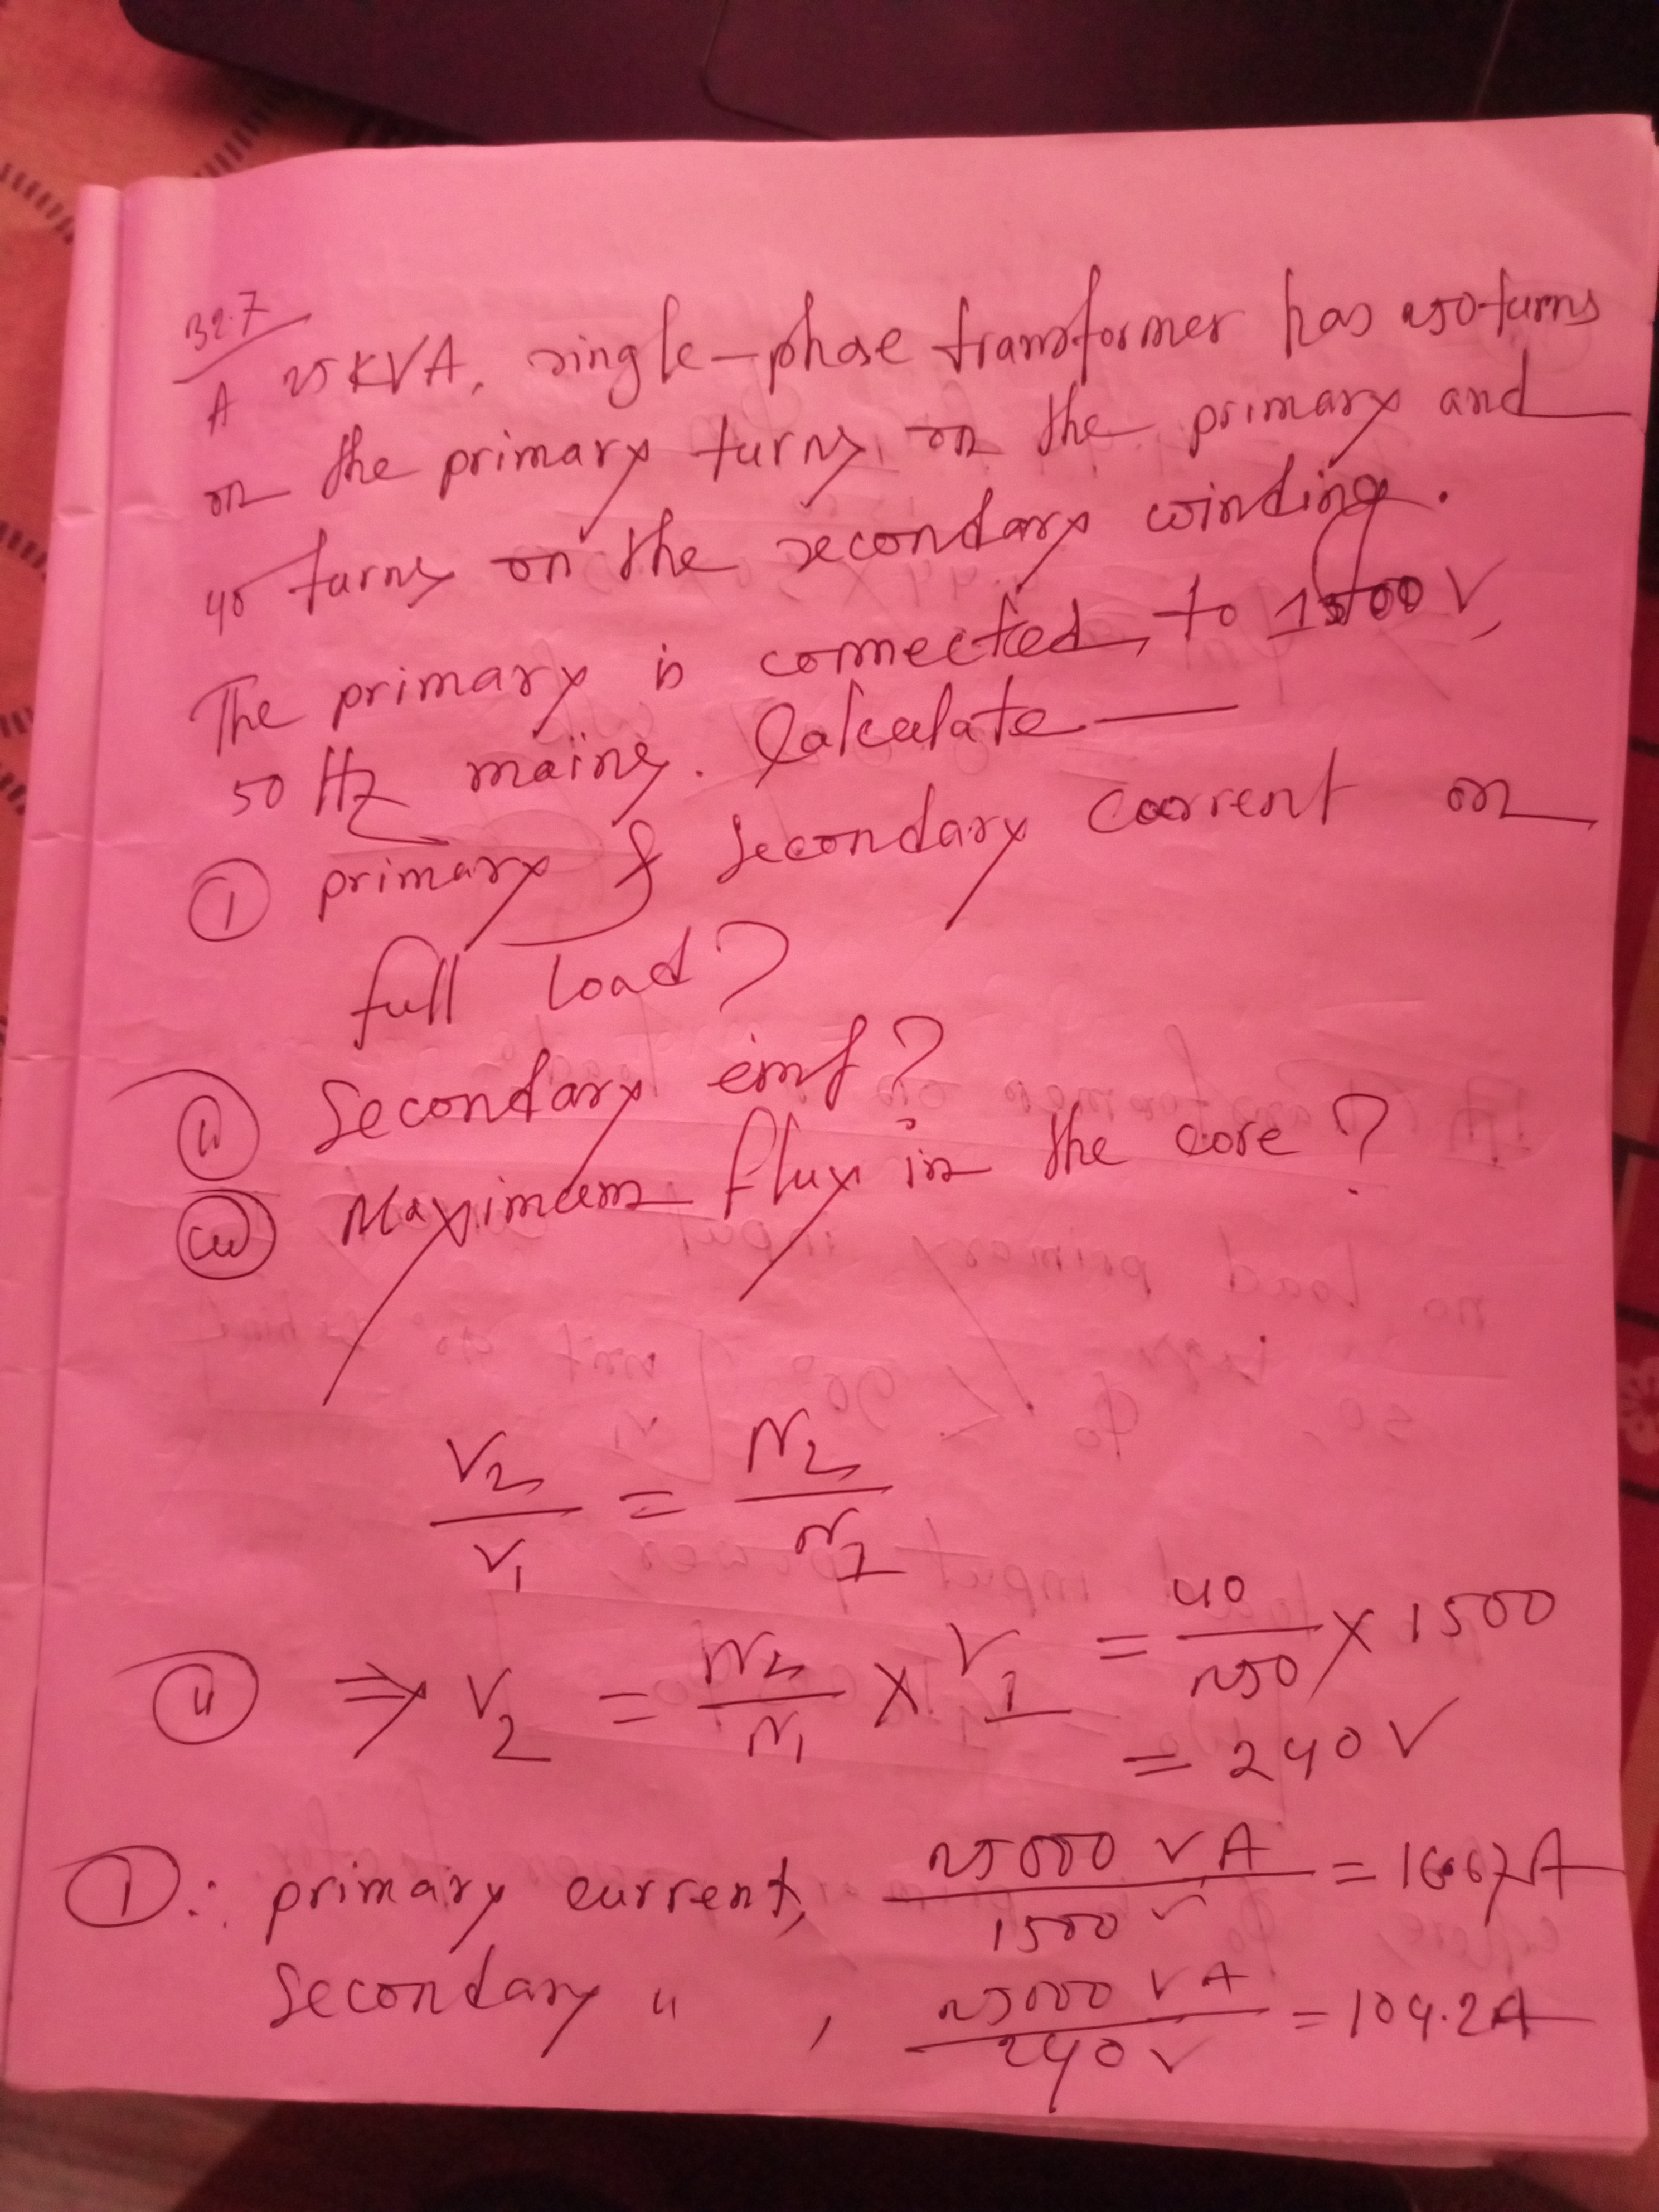 32.7
A 25 KVA, single-phase transformer has 250 turns
on the primary turns on the primary and
40 turns on the secondary winding.
The primary is connected to 1500 V,
50 Hz mains. Calculate —
① primary & secondary current on
full load?
② Secondary emf?
③ Maximum flux in the core?
V2/V1 = N2/N1
② ⇒ V2 = N2/N1 × V1 = 40/250 × 1500
= 240 V
① ∴ primary current, 25000 VA/1500 V = 16.67 A
Secondary " , 25000 VA/240 V = 104.2 A